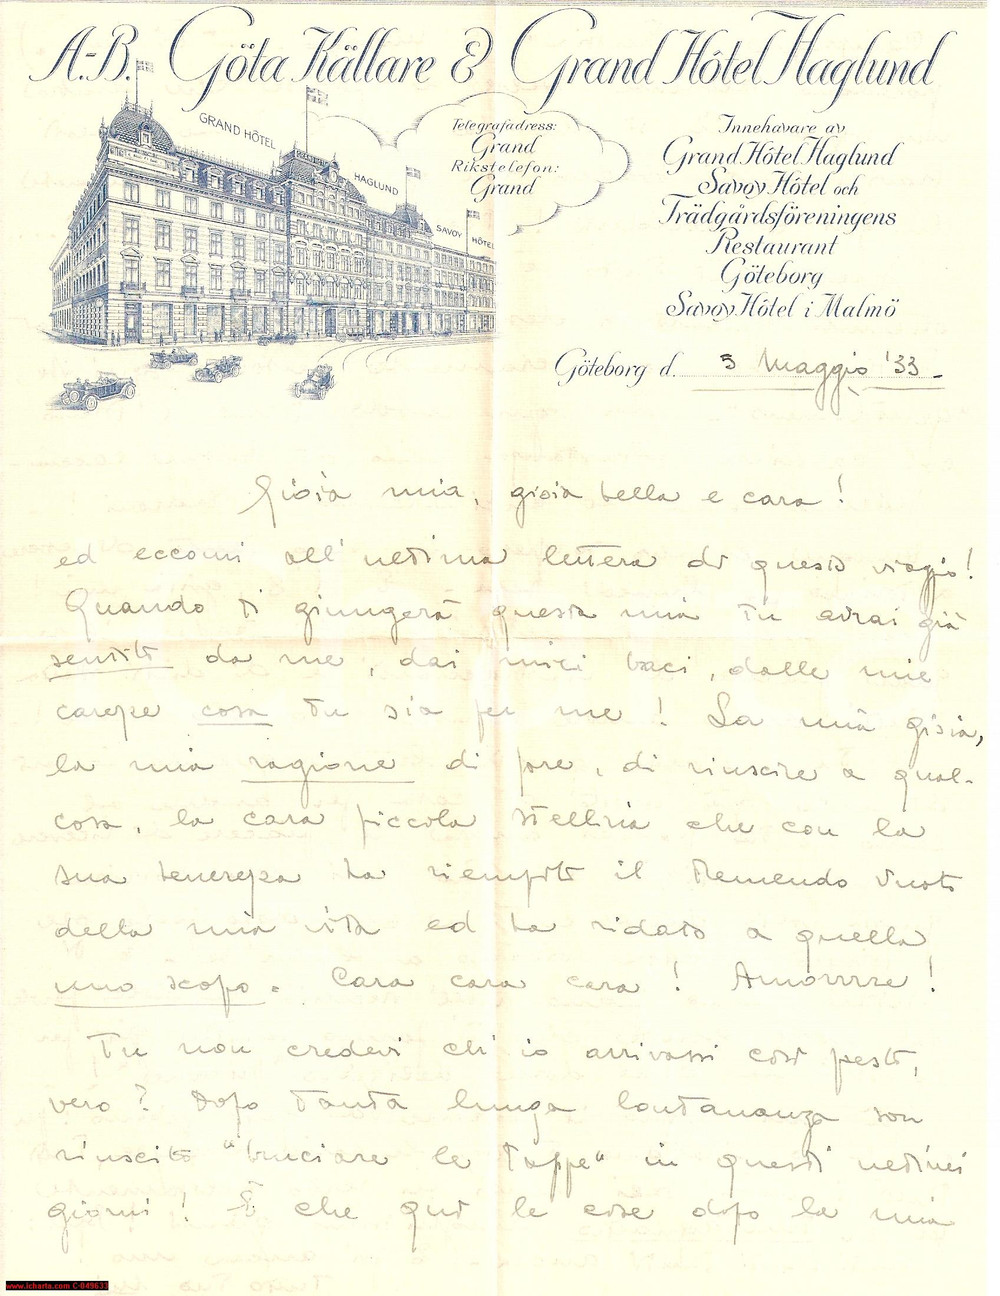 A.-B. Göta Källare & Grand Hôtel Haglund
GRAND HÔTEL
HAGLUND
SAVOY HÔTEL
Telegrafadress:
Grand
Rikstelefon:
Grand
Innehavare av
Grand Hôtel Haglund
Savoy Hôtel och
Trädgårdsföreningens
Restaurant
Göteborg
Savoy Hôtel i Malmö
Göteborg d. 5 Maggio '33
Gioia mia, gioia bella e cara!
ed eccomi all'ultima lettera di questo viaggio!
Quando ti giungerà questa mia tu avrai già
sentito da me, dai miei baci, dalle mie
carezze cosa tu sia per me! La mia gioia,
la mia ragione di fare, di riuscire a qual-
cosa, la cara piccola stellina che con la
sua tenerezza ha riempito il tremendo vuoto
della mia vita ed ha ridato a quella
uno scopo. Cara cara cara! Amorrrre!
Tu non credevi ch'io arrivassi così presto,
vero? Dopo tanta lunga lontananza son
riuscito "bruciare le tappe" in questi ultimi
giorni! È che qui le cose dopo la mia
www.icharta.com C-049633